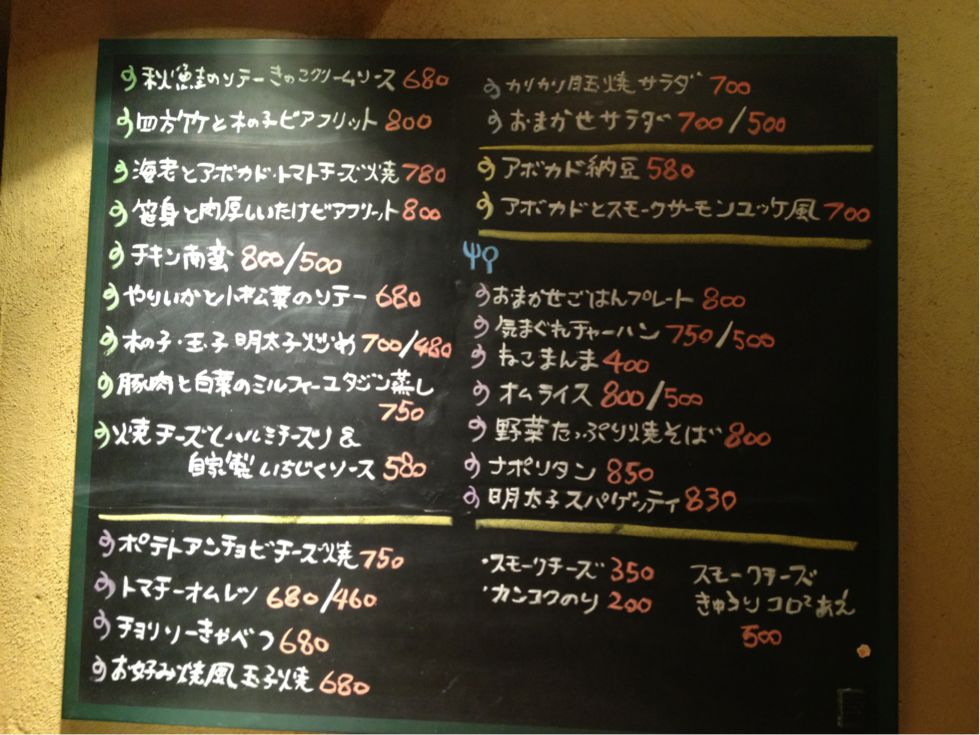 秋鮭のソテーきのこクリームソース 680
四方竹と木の子ビアフリット 800
海老とアボカド・トマトチーズ焼 780
笹身と肉厚しいたけビアフリット 800
チキン南蛮 800/500
やりいかと小松菜のソテー 680
木の子・玉子明太子炒め 700/480
豚肉と白菜のミルフィーユタジン蒸し
750
焼チーズ(ハルミチーズ) &
自家製いちじくソース 580
ポテトアンチョビチーズ焼 750
トマチーオムレツ 680/460
チョリソーきゃべつ 680
お好み焼風玉子焼 680
カリカリ豚焼サラダ 700
おまかせサラダ 700/500
アボカド納豆 580
アボカドとスモークサーモンユッケ風 700
おまかせごはんプレート 800
気まぐれチャーハン 750/500
ねこまんま 400
オムライス 800/500
野菜たっぷり焼そば 800
ナポリタン 850
明太子スパゲッティ 830
・スモークチーズ 350
・カンコクのり 200
スモークチーズ
きゅうりコロコロあえ
500